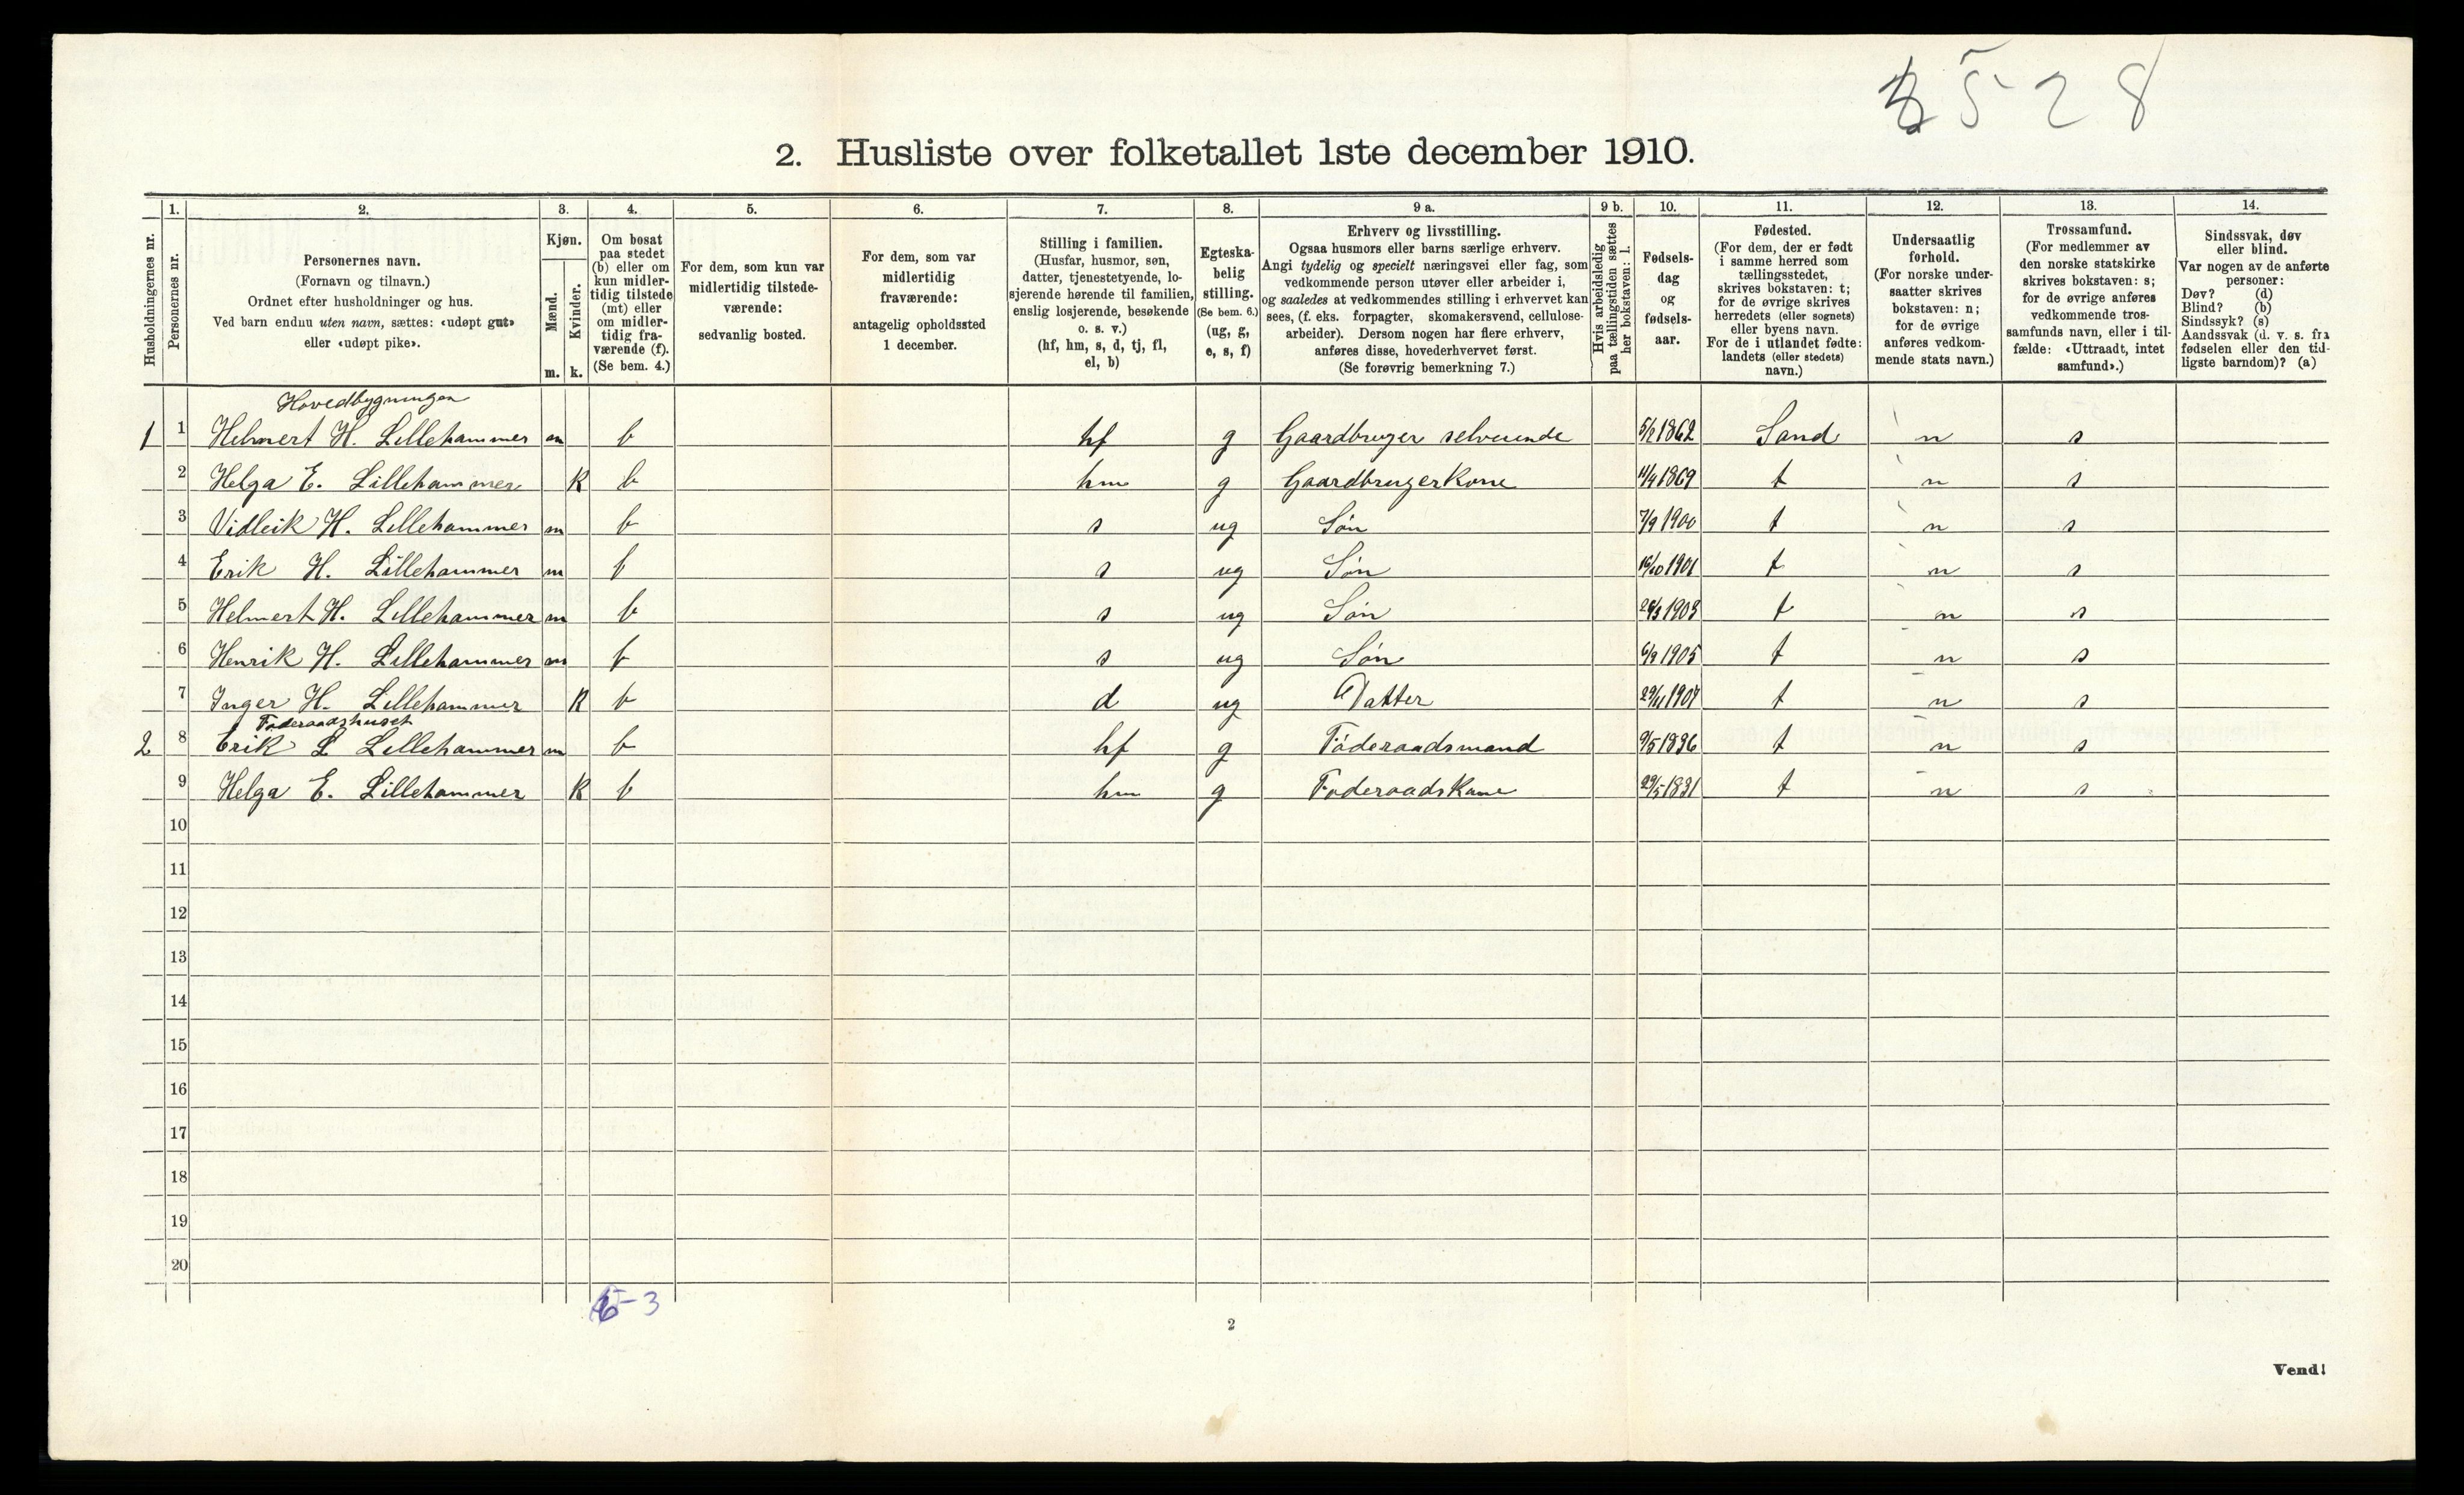 528
2. Husliste over folketallet 1ste december 1910.
Husholdningernes nr.
1. Personernes nr.
2. Personernes navn.
(Fornavn og tilnavn.)
Ordnet efter husholdninger og hus.
Ved barn endnu uten navn, sættes: «udøpt gut»
eller «udøpt pike».
3. Kjøn.
Mænd. m.
Kvinder. k.
4. Om bosat
paa stedet
(b) eller om
kun midler-
tidig tilstede
(mt) eller
om midler-
tidig fra-
værende (f).
(Se bem. 4.)
5. For dem, som kun var
midlertidig tilstede-
værende:
sedvanlig bosted.
6. For dem, som var
midlertidig
fraværende:
antagelig opholdssted
1 december.
7. Stilling i familien.
(Husfar, husmor, søn,
datter, tjenestetyende, lo-
sjerende hørende til familien,
enslig losjerende, besøkende
o. s. v.)
(hf, hm, s, d, tj, fl,
el, b)
8. Egteska-
belig
stilling.
(Se bem. 6.)
(ug, g,
e, s, f)
9 a. Erhverv og livsstilling.
Ogsaa husmors eller barns særlige erhverv.
Angi tydelig og specielt næringsvei eller fag, som
vedkommende person utøver eller arbeider i,
og saaledes at vedkommendes stilling i erhvervet kan
sees, (f. eks. forpagter, skomakersvend, cellulose-
arbeider). Dersom nogen har flere erhverv,
anføres disse, hovederhvervet først.
(Se forøvrig bemerkning 7.)
9 b. Hvis arbeidsledig
paa tællingstiden sættes
her bokstaven: l.
10. Fødsels-
dag
og
fødsels-
aar.
11. Fødested.
(For dem, der er født
i samme herred som
tællingsstedet,
skrives bokstaven: t;
for de øvrige skrives
herredets (eller sognets)
eller byens navn.
For de i utlandet fødte:
landets (eller stedets)
navn.)
12. Undersaatlig
forhold.
(For norske under-
saatter skrives
bokstaven: n;
for de øvrige
anføres vedkom-
mende stats navn.)
13. Trossamfund.
(For medlemmer av
den norske statskirke
skrives bokstaven: s;
for de øvrige anføres
vedkommende tros-
samfunds navn, eller i til-
fælde: «Uttraadt, intet
samfund».)
14. Sindssvak, døv
eller blind.
Var nogen av de anførte
personer:
Døv? (d)
Blind? (b)
Sindssyk? (s)
Aandssvak (d. v. s. fra
fødselen eller den tid-
ligste barndom)? (a)
Hovedbygningen
1 1 Helmert H. Lillehammer m b hf g Gaardbruger selveiende 5/2 1862 Sand n s
2 Helga E. Lillehammer K b hm g Gaardbrugerkone 11/4 1869 t n s
3 Vidleik H. Lillehammer m b s ug Søn 7/9 1900 t n s
4 Erik H. Lillehammer m b s ug Søn 16/10 1901 t n s
5 Helmert H. Lillehammer m b s ug Søn 26/3 1903 t n s
6 Henrik H. Lillehammer m b s ug Søn 6/9 1905 t n s
7 Inger H. Lillehammer K b d ug Datter 29/11 1907 t n s
Føderaadshuset
2 8 Erik L Lillehammer m b hf g Føderaadsmand 9/5 1836 t n s
9 Helga E. Lillehammer K b hm g Føderaadskone 29/5 1831 t n s
10
11
12
13
14
15
16
17
18
19
20
-3
2
Vend!